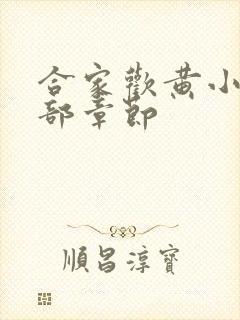 合家歡黄小
部章節
順昌淳寶